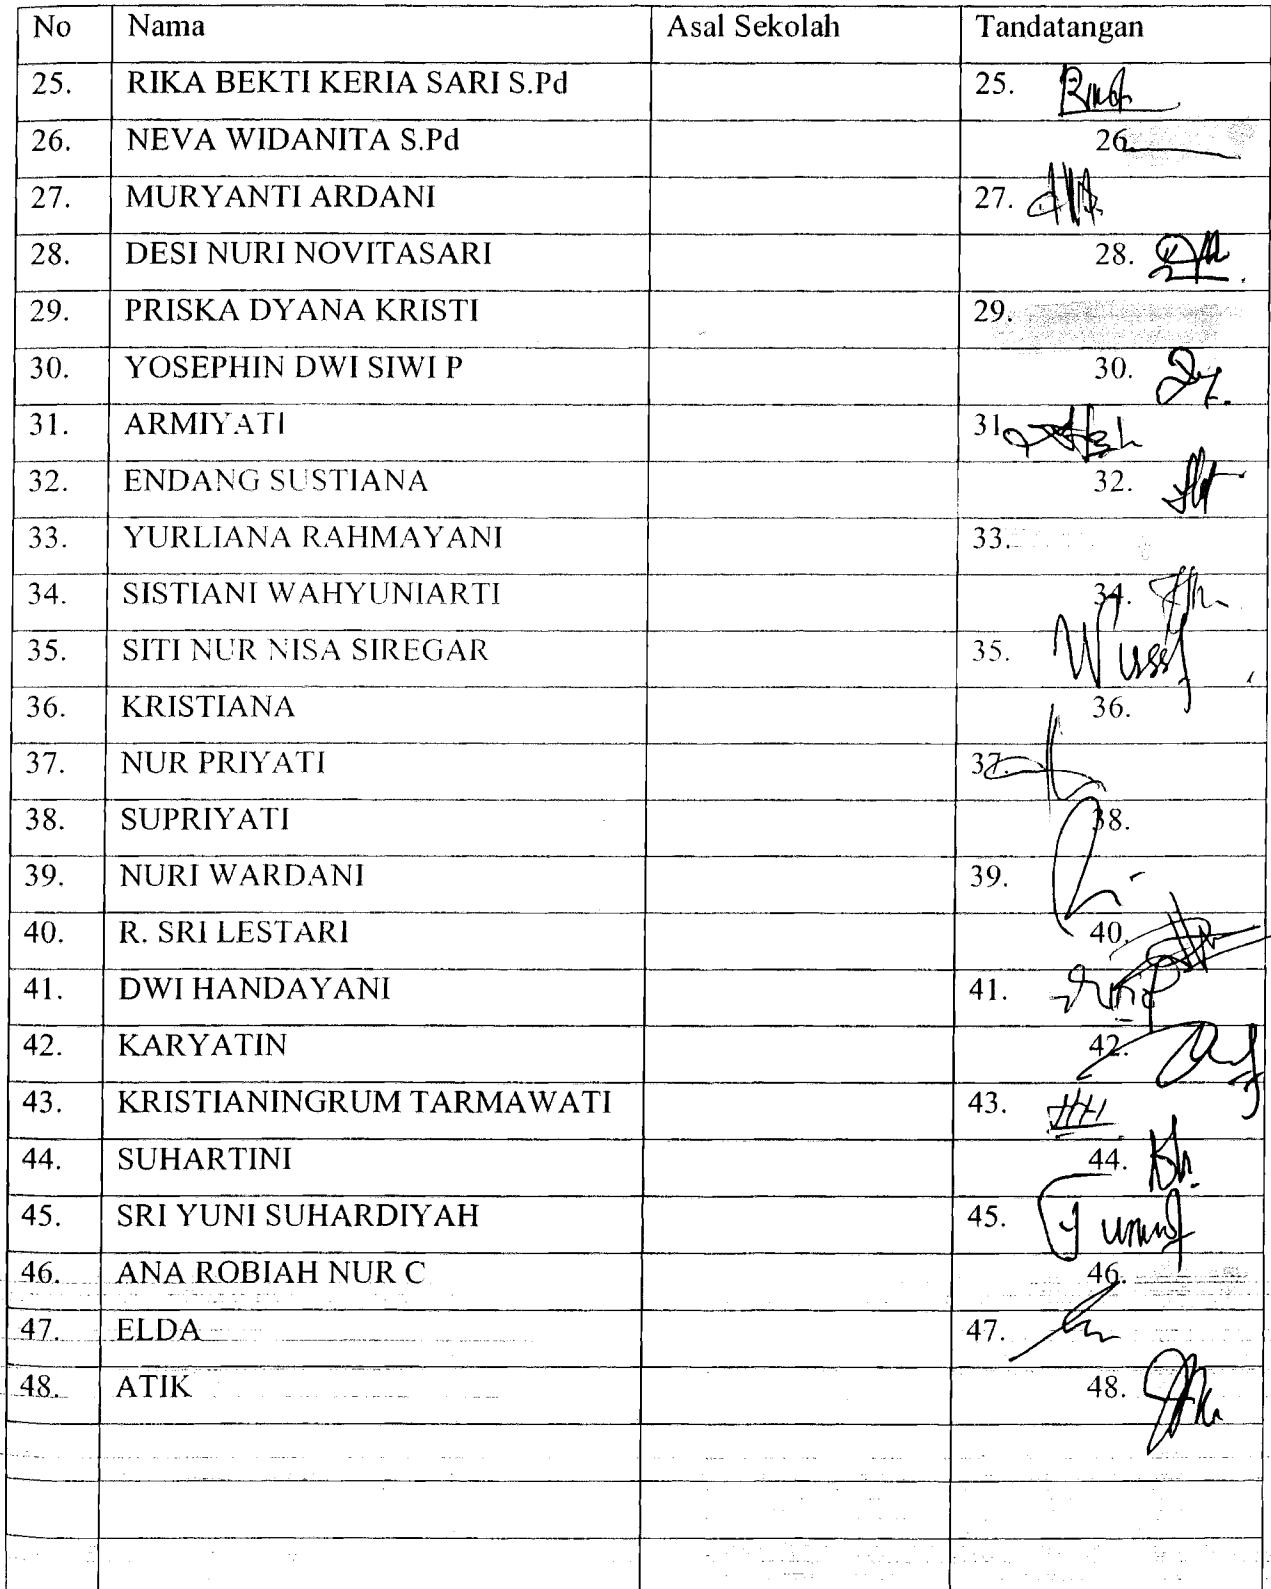 No Nama Asal Sekolah Tandatangan
25. RIKA BEKTI KERIA SARI S.Pd 25.
26. NEVA WIDANITA S.Pd 26.
27. MURYANTI ARDANI 27.
28. DESI NURI NOVITASARI 28.
29. PRISKA DYANA KRISTI 29.
30. YOSEPHIN DWI SIWI P 30.
31. ARMIYATI 31.
32. ENDANG SUSTIANA 32.
33. YURLIANA RAHMAYANI 33.
34. SISTIANI WAHYUNIARTI 34.
35. SITI NUR NISA SIREGAR 35.
36. KRISTIANA 36.
37. NUR PRIYATI 37.
38. SUPRIYATI 38.
39. NURI WARDANI 39.
40. R. SRI LESTARI 40.
41. DWI HANDAYANI 41.
42. KARYATIN 42.
43. KRISTIANINGRUM TARMAWATI 43.
44. SUHARTINI 44.
45. SRI YUNI SUHARDIYAH 45.
46. ANA ROBIAH NUR C 46.
47. ELDA 47.
48. ATIK 48.